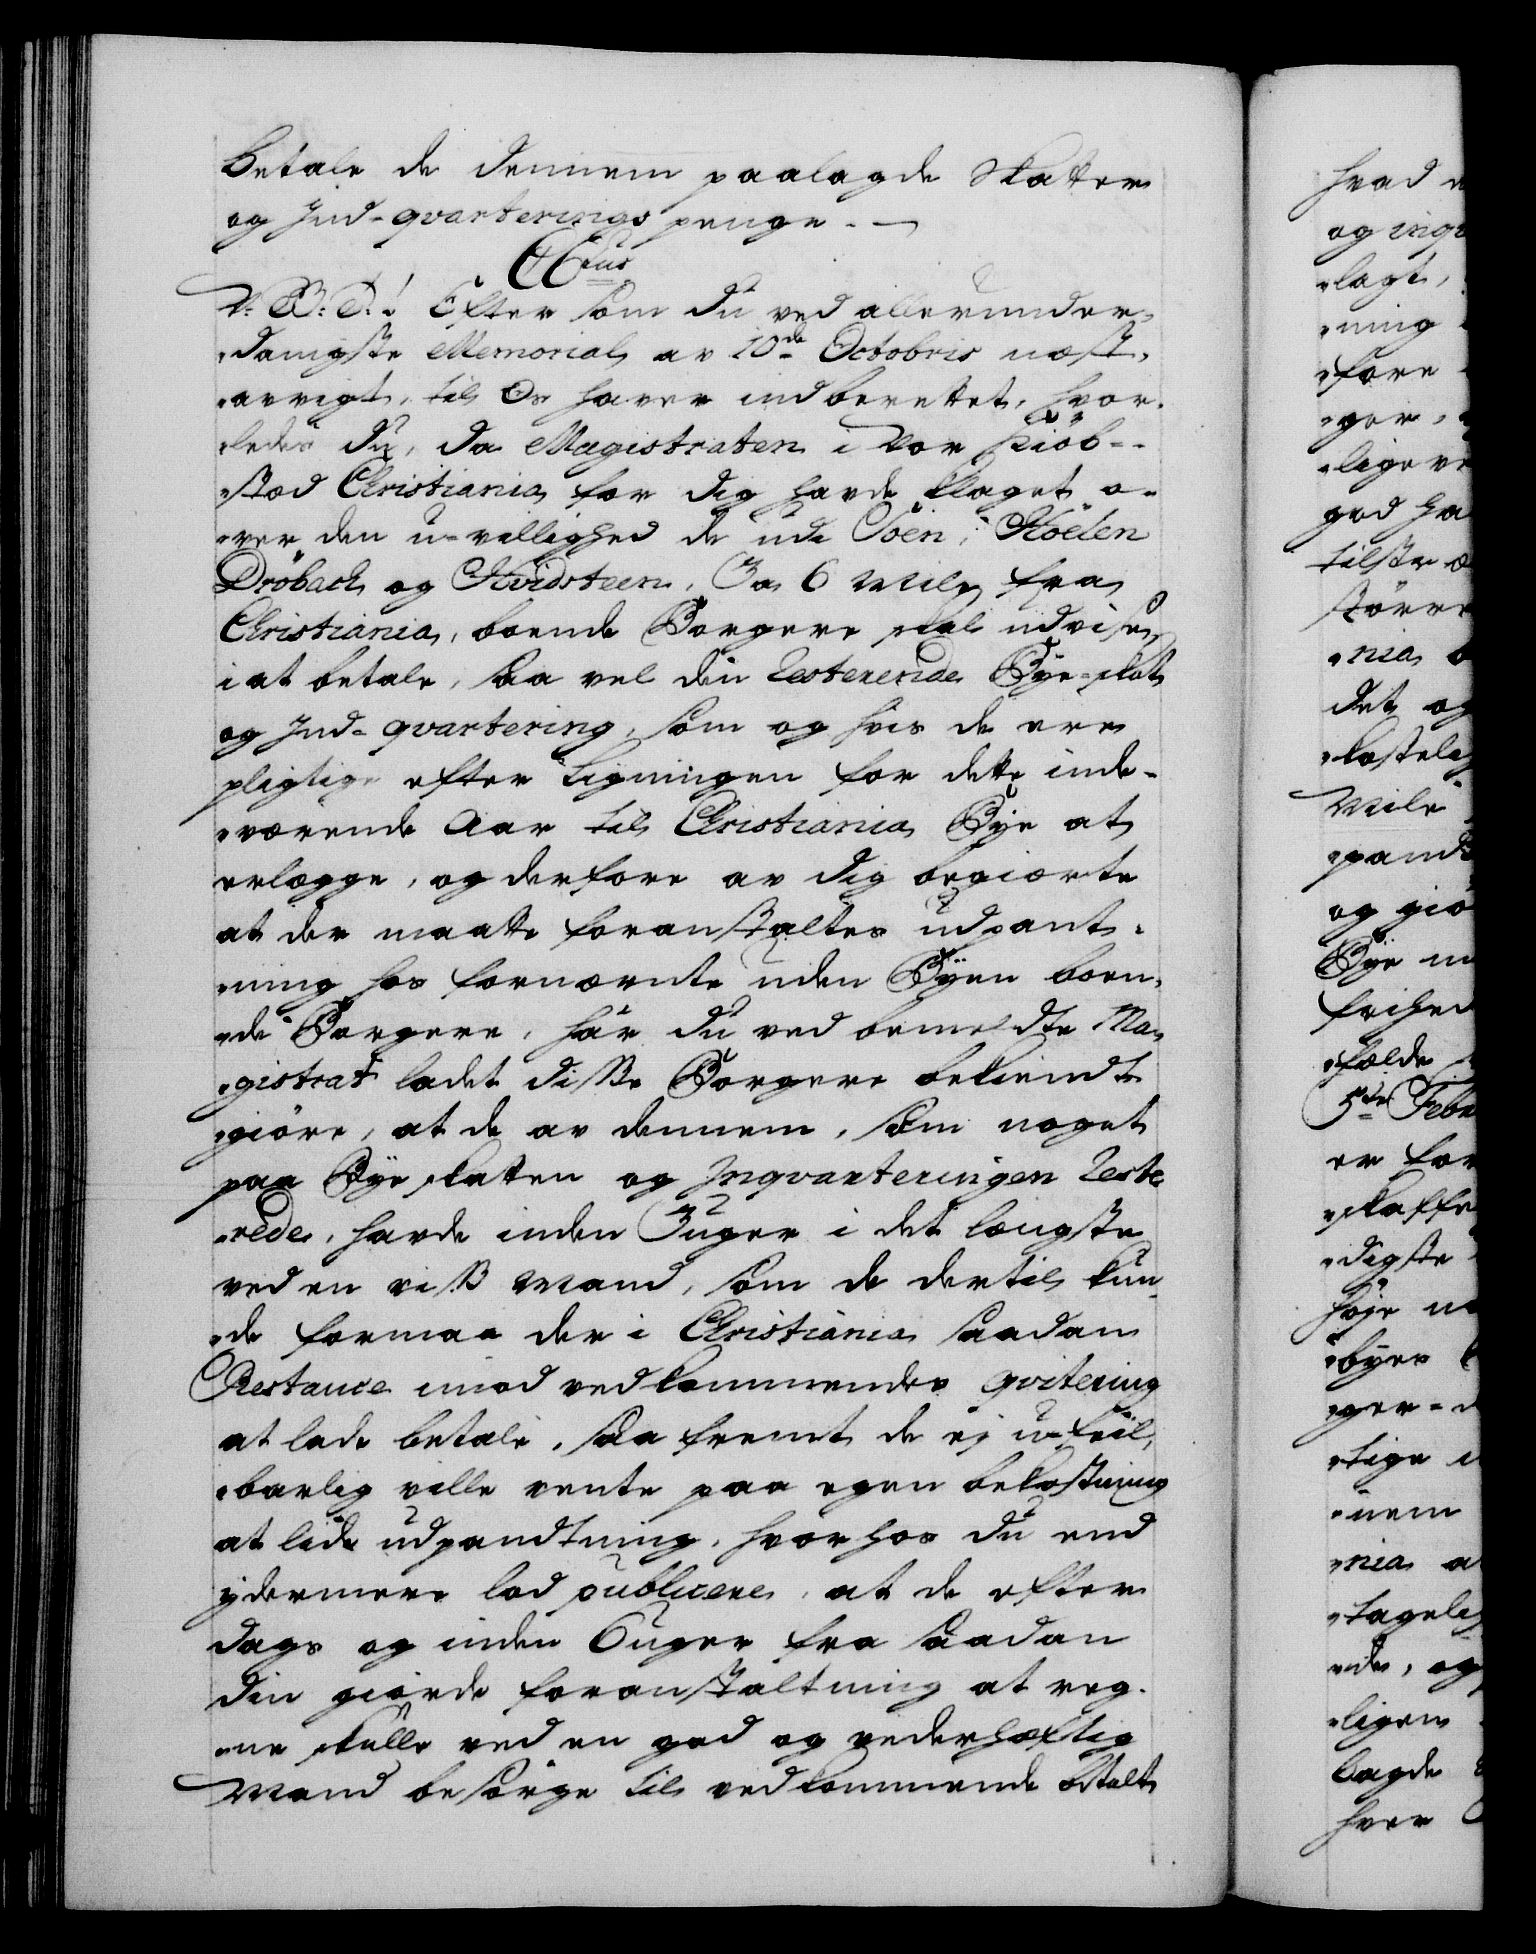 betale de dennem paalagde Skatter
og Ind-qvarterings penge. —
CCtus
V. B: T.! Efter som du ved allerunder-
danigste Memorial av 10de Octobris næst-
avvigt, til Os haver indberettet, hvor-
ledes du, da Magistraten i vor Kiöb-
stad Christiania for dig havde klaget o-
ver den u-villighed de udi Soen, Höelen
Dröbach og Hvidsteen, 3 a 6 Mile fra
Christiania, boende Borgere skal udvise
i at betale, saa vel din resterende Bÿe-skat
og Ind-qvartering, som og hvis de ere
pligtige efter Ligningen for dette inde-
værende Aar til Christiania Bÿe at
erlægge, og derfore av dig begiærte
at der maatte foranstaltes udpant-
ning hos fornævnte uden Bÿen boen-
de Borgere, har du ved bemeldte Ma-
gistrat ladet disse Borgere bekiendt
giöre, at de av dennem, som noget
paa Bÿe skatten og Inqvarteringen reste
rede, havde inden 3 uger i det længste
ved en viss Mand, som de dertil kun-
de formaa der i Christiania saadan
Restance imod vedkommendes qvitering
at lade betale, saa fremt de ej u-feil-
barlig ville vente paa egen bekostning
at lide udpandtning, hvorhos du end
ÿdermere lod publicere, at de efter
dags og inden 6 uger fra saadan
din giorde foranstaltning at reg-
ne skulle ved en god og vederhæftig
Mand besörge til vedkommende betalt
hvad
og inqv
lagt,
ning
fore
ger,
lige ve
god ha
tilstræ
större
nia
det og
kostelig
Mile
pand
og giö
Bÿe
frihed
fælde
5te Febr
er for
skaffe
digste
höje
bÿes
ger-
tige
nem
nia
tagelig
de, og
ligen
bagde
hver